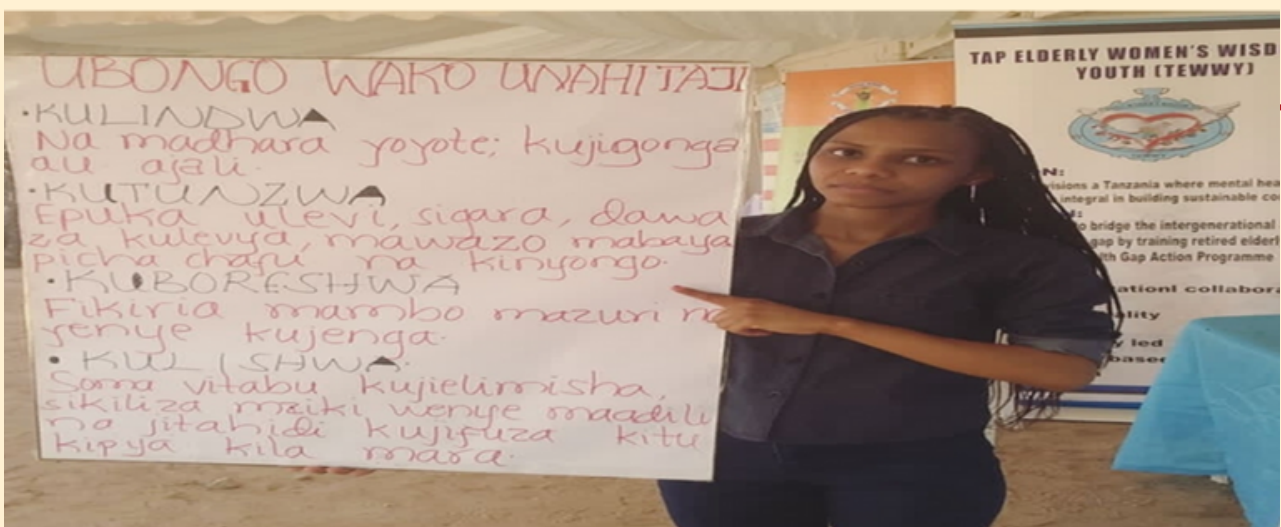 UBONGO WAKO UNAHITAJI
•KULINDWA
Na madhara yoyote; kujigonga
au ajali.
•KUTUNZWA
Epuka ulevi, sigara, dawa
za kulevya, mawazo mabaya
picha chafu na kinyongo.
•KUBORESHWA
Fikiria mambo mazuri na
yenye kujenga.
•KULISHWA.
Soma vitabu kujielimisha,
sikiliza mziki wenye maadili
na jitahidi kujifuza kitu
kipya kila mara.
TAP ELDERLY WOMEN'S WISD
YOUTH (TEWWY)
TEWWY
N:
visions a Tanzania where mental hea
integral in building sustainable co
o bridge the intergenerational
gap by training retired elderl
lth Gap Action Programme
ationl collabora
ality
y led
based